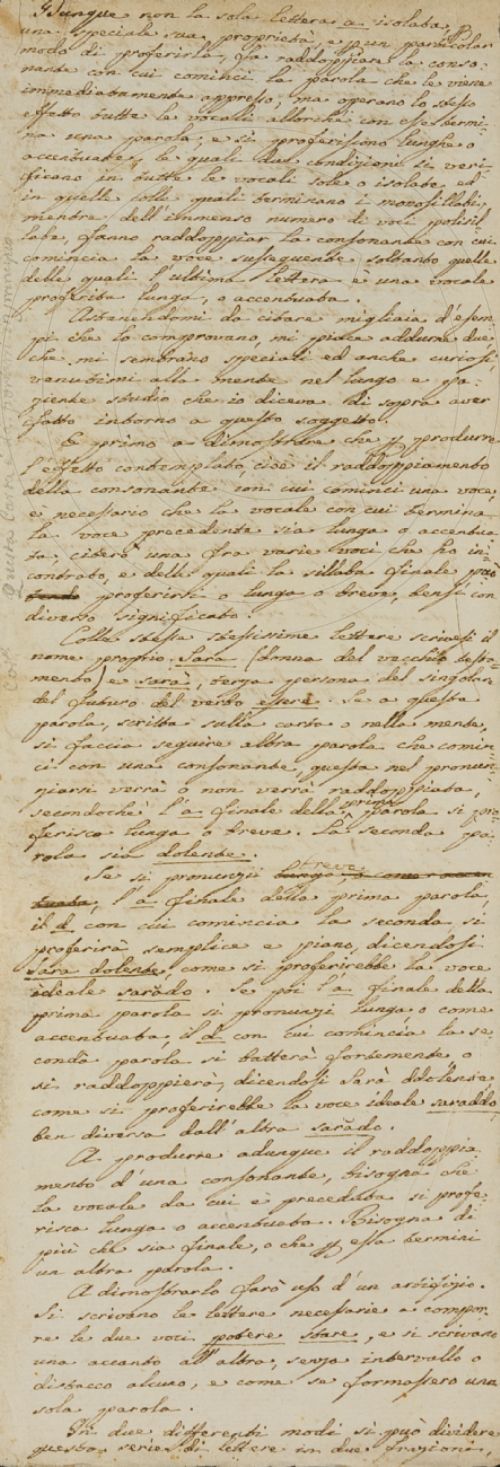 Dunque non la sola lettera a isolata, p
una speciale sua proprietà, e p un particolar
modo di proferirla, fa raddoppiare la conso-
nante con cui cominci la parola che le viene
immediatamente appresso, ma operano lo stesso
effetto tutte le vocali allorchè con esse termi-
na una parola, e si proferiscono lunghe o
accentuate, le quali due condizioni si veri-
ficano in tutte le vocali sole o isolate, ed
in quelle colle quali terminano i monosillabi,
mentre dell'immenso numero di voci polisil-
labe, fanno raddoppiar la consonante con cui
comincia la voce susseguente soltanto quelle
delle quali l'ultima lettera è una vocale
proferita lunga, o accentuata.
Astenendomi da citare migliaia d'esem-
pi che lo comprovano, mi piace addurne due
che mi sembrano speciali ed anche curiosi,
venutimi alla mente nel lungo e pa-
ziente studio che io diceva di sopra aver
fatto intorno a questo soggetto.
E primo a dimostrare che p produrre
l'effetto contemplato, cioè il raddoppiamento
della consonante con cui cominci una voce
è necessario che la vocale con cui termina
la voce precedente sia lunga o accentua-
ta, citerò una fra varie voci che ho in-
contrato, e delle quali la sillaba finale può
proferirsi o lunga o breve, bensì con
diverso significato.
Colle stesse stessissime lettere scrivesi il
nome proprio Sara (donna del vecchio testa-
mento) e sarà, terza persona del singolar
del futuro del verbo essere. Se a questa
parola, scritta sulla carta o nella mente,
si faccia seguire altra parola che comin-
ci con una consonante, questa nel pronun-
ziarsi verrà o non verrà raddoppiata,
secondochè l'a finale della prima parola si pro-
ferisca lunga o breve. La seconda pa-
rola sia dolente.
Se si pronunzii breve lunga, o come accen
tuata, l'a finale della prima parola,
il d con cui comincia la seconda si
proferirà semplice e piano, dicendosi
Sara dolente, come si proferirebbe la voce
ideale sarădo. Se poi l'a finale della
prima parola si pronunzj lunga o come
accentuata, il d con cui comincia la se-
conda parola si batterà fortemente, o
si raddoppierà, dicendosi Sarà ddolente
come si proferirebbe la voce ideale saraddo,
ben diversa dall'altra sarădo.
A produrre adunque il raddoppia-
mento d'una consonante, bisogna che
la vocale da cui è preceduta si profe-
risca lunga o accentuata. Bisogna di
più che sia finale, o che p essa termini
un altra parola.
A dimostrarlo farò uso d'un artifizio.
Si scrivano le lettere necessarie a compor-
re le due voci potere stare, e si scrivano
una accanto all'altra, senza intervallo o
distacco alcuno, e come se formassero una
sola parola.
In due differenti modi si può dividere
questa serie di lettere in due frazioni,